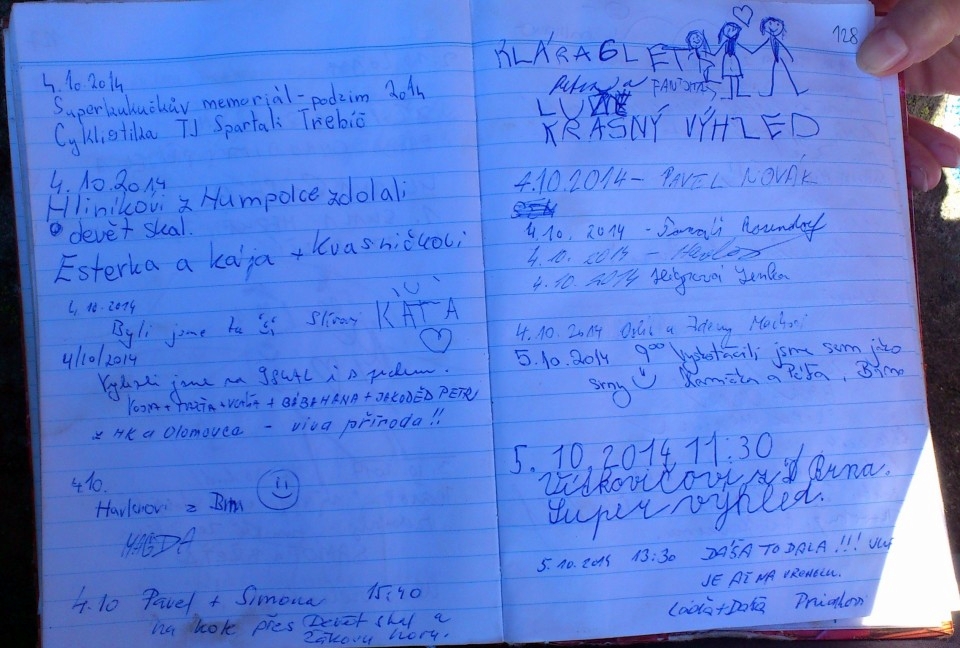 4.10.2014
Superkukučkův memoriál - podzim 2014
Cyklistika TJ Spartak Třebíč
4.10.2014
Hliníkovi z Humpolce zdolali
devět skal.
Esterka a kája + Kvasničkovi
4.10.2014
Byli jsme tu
KÁŤA
4/10/2014
jsme na 9SKAL i s
+ BÁBA HANA +
z HK a Olomouce - viva příroda!!
4.10.
Havlovi z Brna
MAGDA
4.10 Pavel + Simona 15:40
na kole přes Devět skal a
Žákovu horu.
128
KLÁRA 6 LET
KRÁSNÝ VÝHLED
4.10.2014 - PAVEL NOVÁK
4.10. 2014 - Rosendorf
4.10. 2014 -
4.10. 2014 Lenka
4.10.2014 a Zdeny
5.10.2014 9⁰⁰ jsme sem jako
srny a Péťa, Brno
5. 10. 2014 11:30
Vítkovičovi z Brna.
Super výhled.
5.10.2014 13:30 DÁŠA TO DALA!!!
JE AŽ NA VRCHOLU.
Láďa + Dáša